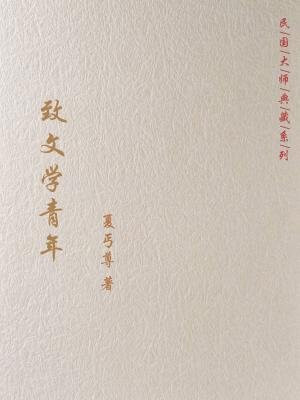 民国大师典藏系列
致文学青年
夏丏尊 著